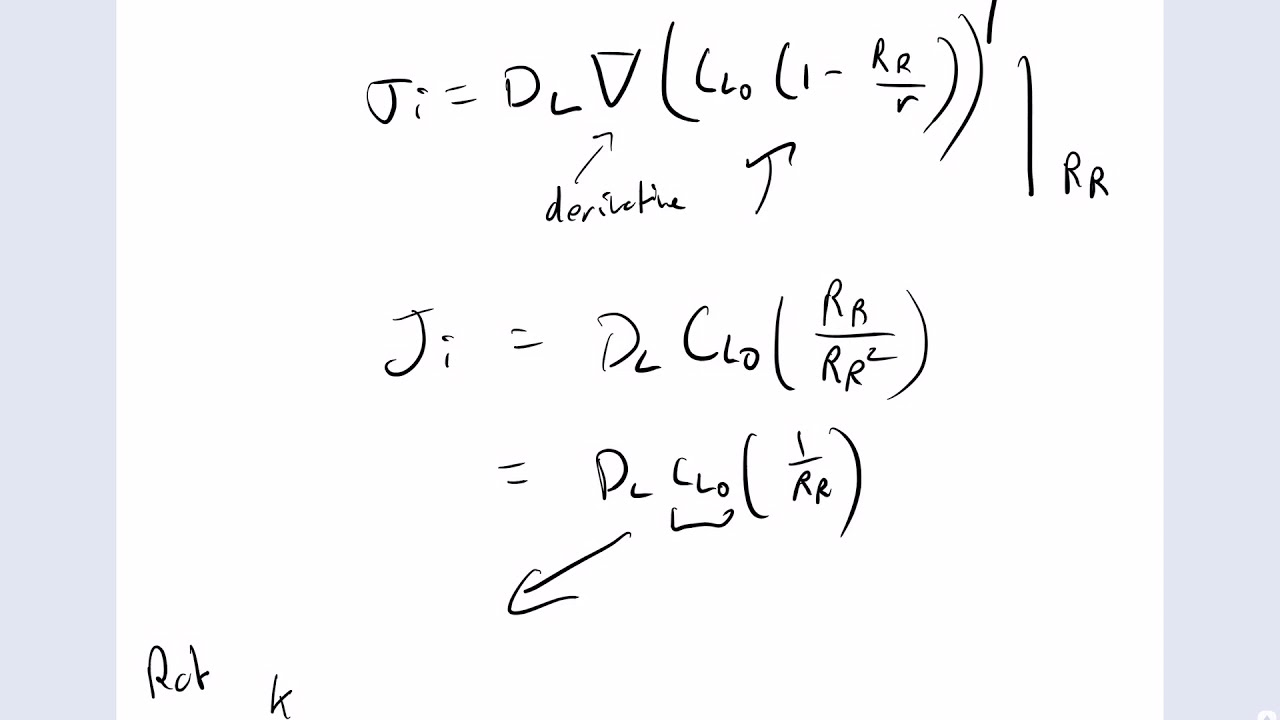 Ji = D_L ∇ (C_L0 (1 - R_R/r)) | R_R
derivative
Ji = D_L C_L0 (R_R/R_R²)
= D_L C_L0 (1/R_R)
Rat k